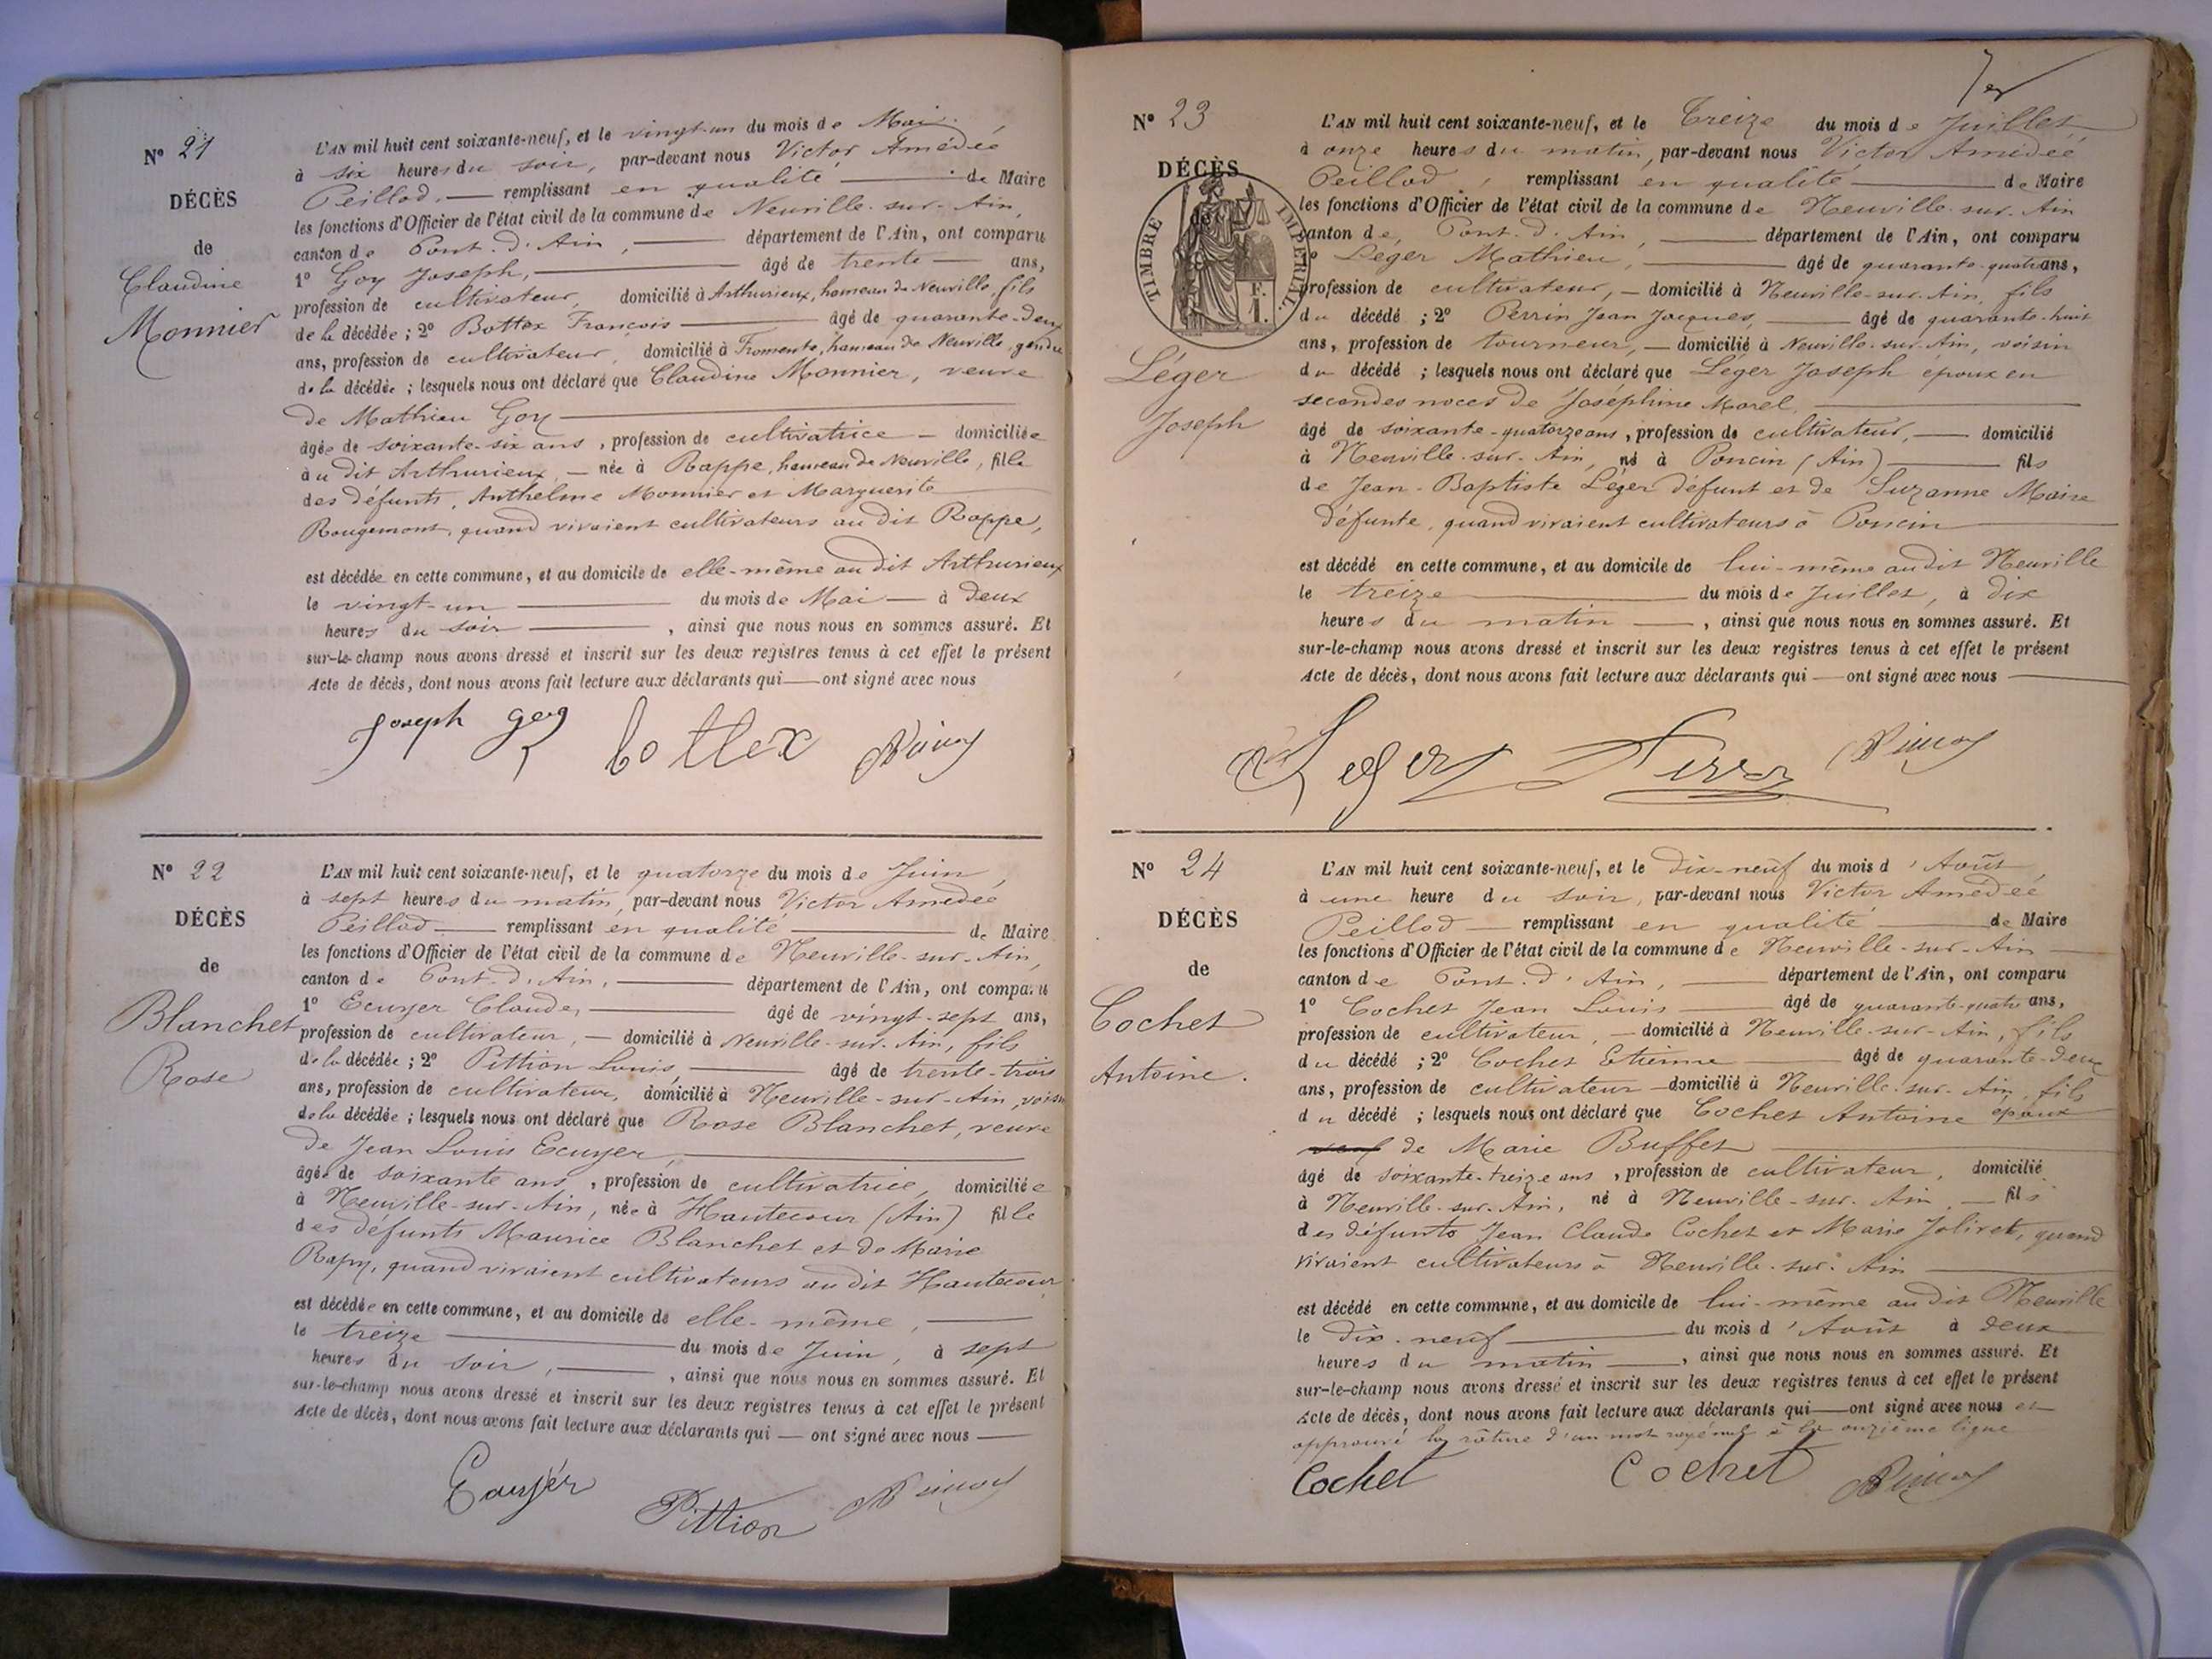 N° 21
DÉCÈS
de
Claudine
Monnier
L'AN mil huit cent soixante-neuf, et le vingt-un du mois de Mai
à six heures du soir, par-devant nous Victor Amédée
Peillod, remplissant en qualité de Maire
les fonctions d'Officier de l'état civil de la commune de Neuville-sur-Ain,
canton de Pont-d'Ain, département de l'Ain, ont comparu
1° Goy Joseph, âgé de trente ans,
profession de cultivateur, domicilié à Arthurieux, hameau de Neuville, fils
de la décédée ; 2° Bottex François âgé de quarante-deux
ans, profession de cultivateur, domicilié à Fromente, hameau de Neuville, gendre
de la décédée ; lesquels nous ont déclaré que Claudine Monnier, veuve
de Mathieu Goy
âgée de soixante-six ans, profession de cultivatrice domiciliée
à u dit Arthurieux, née à Rappe, hameau de Neuville, fille
des défunts, Anthelme Monnier et Marguerite
Rougemont, quand vivaient cultivateurs au dit Rappe,
est décédée en cette commune, et au domicile de elle-même au dit Arthurieux
le vingt-un du mois de Mai à deux
heures du soir, ainsi que nous nous en sommes assuré. Et
sur-le-champ nous avons dressé et inscrit sur les deux registres tenus à cet effet le présent
Acte de décès, dont nous avons fait lecture aux déclarants qui ont signé avec nous
Joseph goy bottex
N° 22
DÉCÈS
de
Blanchet
Rose
L'AN mil huit cent soixante-neuf, et le quatorze du mois de Juin,
à sept heures du matin, par-devant nous Victor Amédée
Peillod remplissant en qualité de Maire
les fonctions d'Officier de l'état civil de la commune de Neuville-sur-Ain,
canton de Pont-d'Ain, département de l'Ain, ont comparu
1° Ecuyer Claude, âgé de vingt-sept ans,
profession de cultivateur, domicilié à Neuville-sur-Ain, fils
de la décédée ; 2° Pittion Louis, âgé de trente-trois
ans, profession de cultivateur, domicilié à Neuville-sur-Ain, voisin
de la décédée ; lesquels nous ont déclaré que Rose Blanchet, veuve
de Jean Louis Ecuyer,
âgée de soixante ans, profession de cultivatrice, domiciliée
à Neuville-sur-Ain, née à Hautecour (Ain) fille
des défunts Maurice Blanchet et de Marie
Rapy, quand vivaient cultivateurs au dit Hautecour
est décédée en cette commune, et au domicile de elle-même,
le treize du mois de Juin, à sept
heures du soir, ainsi que nous nous en sommes assuré. Et
sur-le-champ nous avons dressé et inscrit sur les deux registres tenus à cet effet le présent
Acte de décès, dont nous avons fait lecture aux déclarants qui ont signé avec nous
Ecuyér Pittion
N° 23
DÉCÈS
de
TIMBRE IMPÉRIAL
F.
1.
Léger
Joseph
L'AN mil huit cent soixante-neuf, et le treize du mois de Juillet,
à onze heures du matin, par-devant nous Victor Amédée
Peillod, remplissant en qualité de Maire
les fonctions d'Officier de l'état civil de la commune de Neuville-sur-Ain
canton de, Pont-d'Ain, département de l'Ain, ont comparu
1° Léger Mathieu, âgé de quarante-quatre ans,
profession de cultivateur, domicilié à Neuville-sur-Ain, fils
du décédé ; 2° Perrin Jean Jacques, âgé de quarante-huit
ans, profession de tourneur, domicilié à Neuville-sur-Ain, voisin
du décédé ; lesquels nous ont déclaré que Léger Joseph époux en
secondes noces de Joséphine Morel,
âgé de soixante-quatorze ans, profession de cultivateur, domicilié
à Neuville-sur-Ain, né à Poncin (Ain) fils
de Jean-Baptiste Léger défunt et de Suzanne Maire
défunte, quand vivaient cultivateurs à Poncin
est décédé en cette commune, et au domicile de lui-même au dit Neuville
le treize du mois de Juillet, à dix
heures du matin, ainsi que nous nous en sommes assuré. Et
sur-le-champ nous avons dressé et inscrit sur les deux registres tenus à cet effet le présent
Acte de décès, dont nous avons fait lecture aux déclarants qui ont signé avec nous
Leger
N° 24
DÉCÈS
de
Cochet
Antoine.
L'AN mil huit cent soixante-neuf, et le dix-neuf du mois d'Août,
à une heure du soir, par-devant nous Victor Amédée
Peillod remplissant en qualité de Maire
les fonctions d'Officier de l'état civil de la commune de Neuville-sur-Ain
canton de Pont-d'Ain, département de l'Ain, ont comparu
1° Cochet Jean Louis âgé de quarante-quatre ans,
profession de cultivateur, domicilié à Neuville-sur-Ain, fils
du décédé ; 2° Cochet Etienne âgé de quarante-deux
ans, profession de cultivateur domicilié à Neuville-sur-Ain, fils
du décédé ; lesquels nous ont déclaré que Cochet Antoine époux
veuf de Marie Buffet
âgé de soixante-treize ans, profession de cultivateur, domicilié
à Neuville-sur-Ain, né à Neuville-sur-Ain, fils
des défunts Jean Claude Cochet et Marie Jolivet, quand
vivaient cultivateurs à Neuville-sur-Ain
est décédé en cette commune, et au domicile de lui-même au dit Neuville
le dix-neuf du mois d'Août à deux
heures du matin, ainsi que nous nous en sommes assuré. Et
sur-le-champ nous avons dressé et inscrit sur les deux registres tenus à cet effet le présent
Acte de décès, dont nous avons fait lecture aux déclarants qui ont signé avec nous et
approuvé la rature d'un mot rayé nul à la onzième ligne
Cochet Cochet